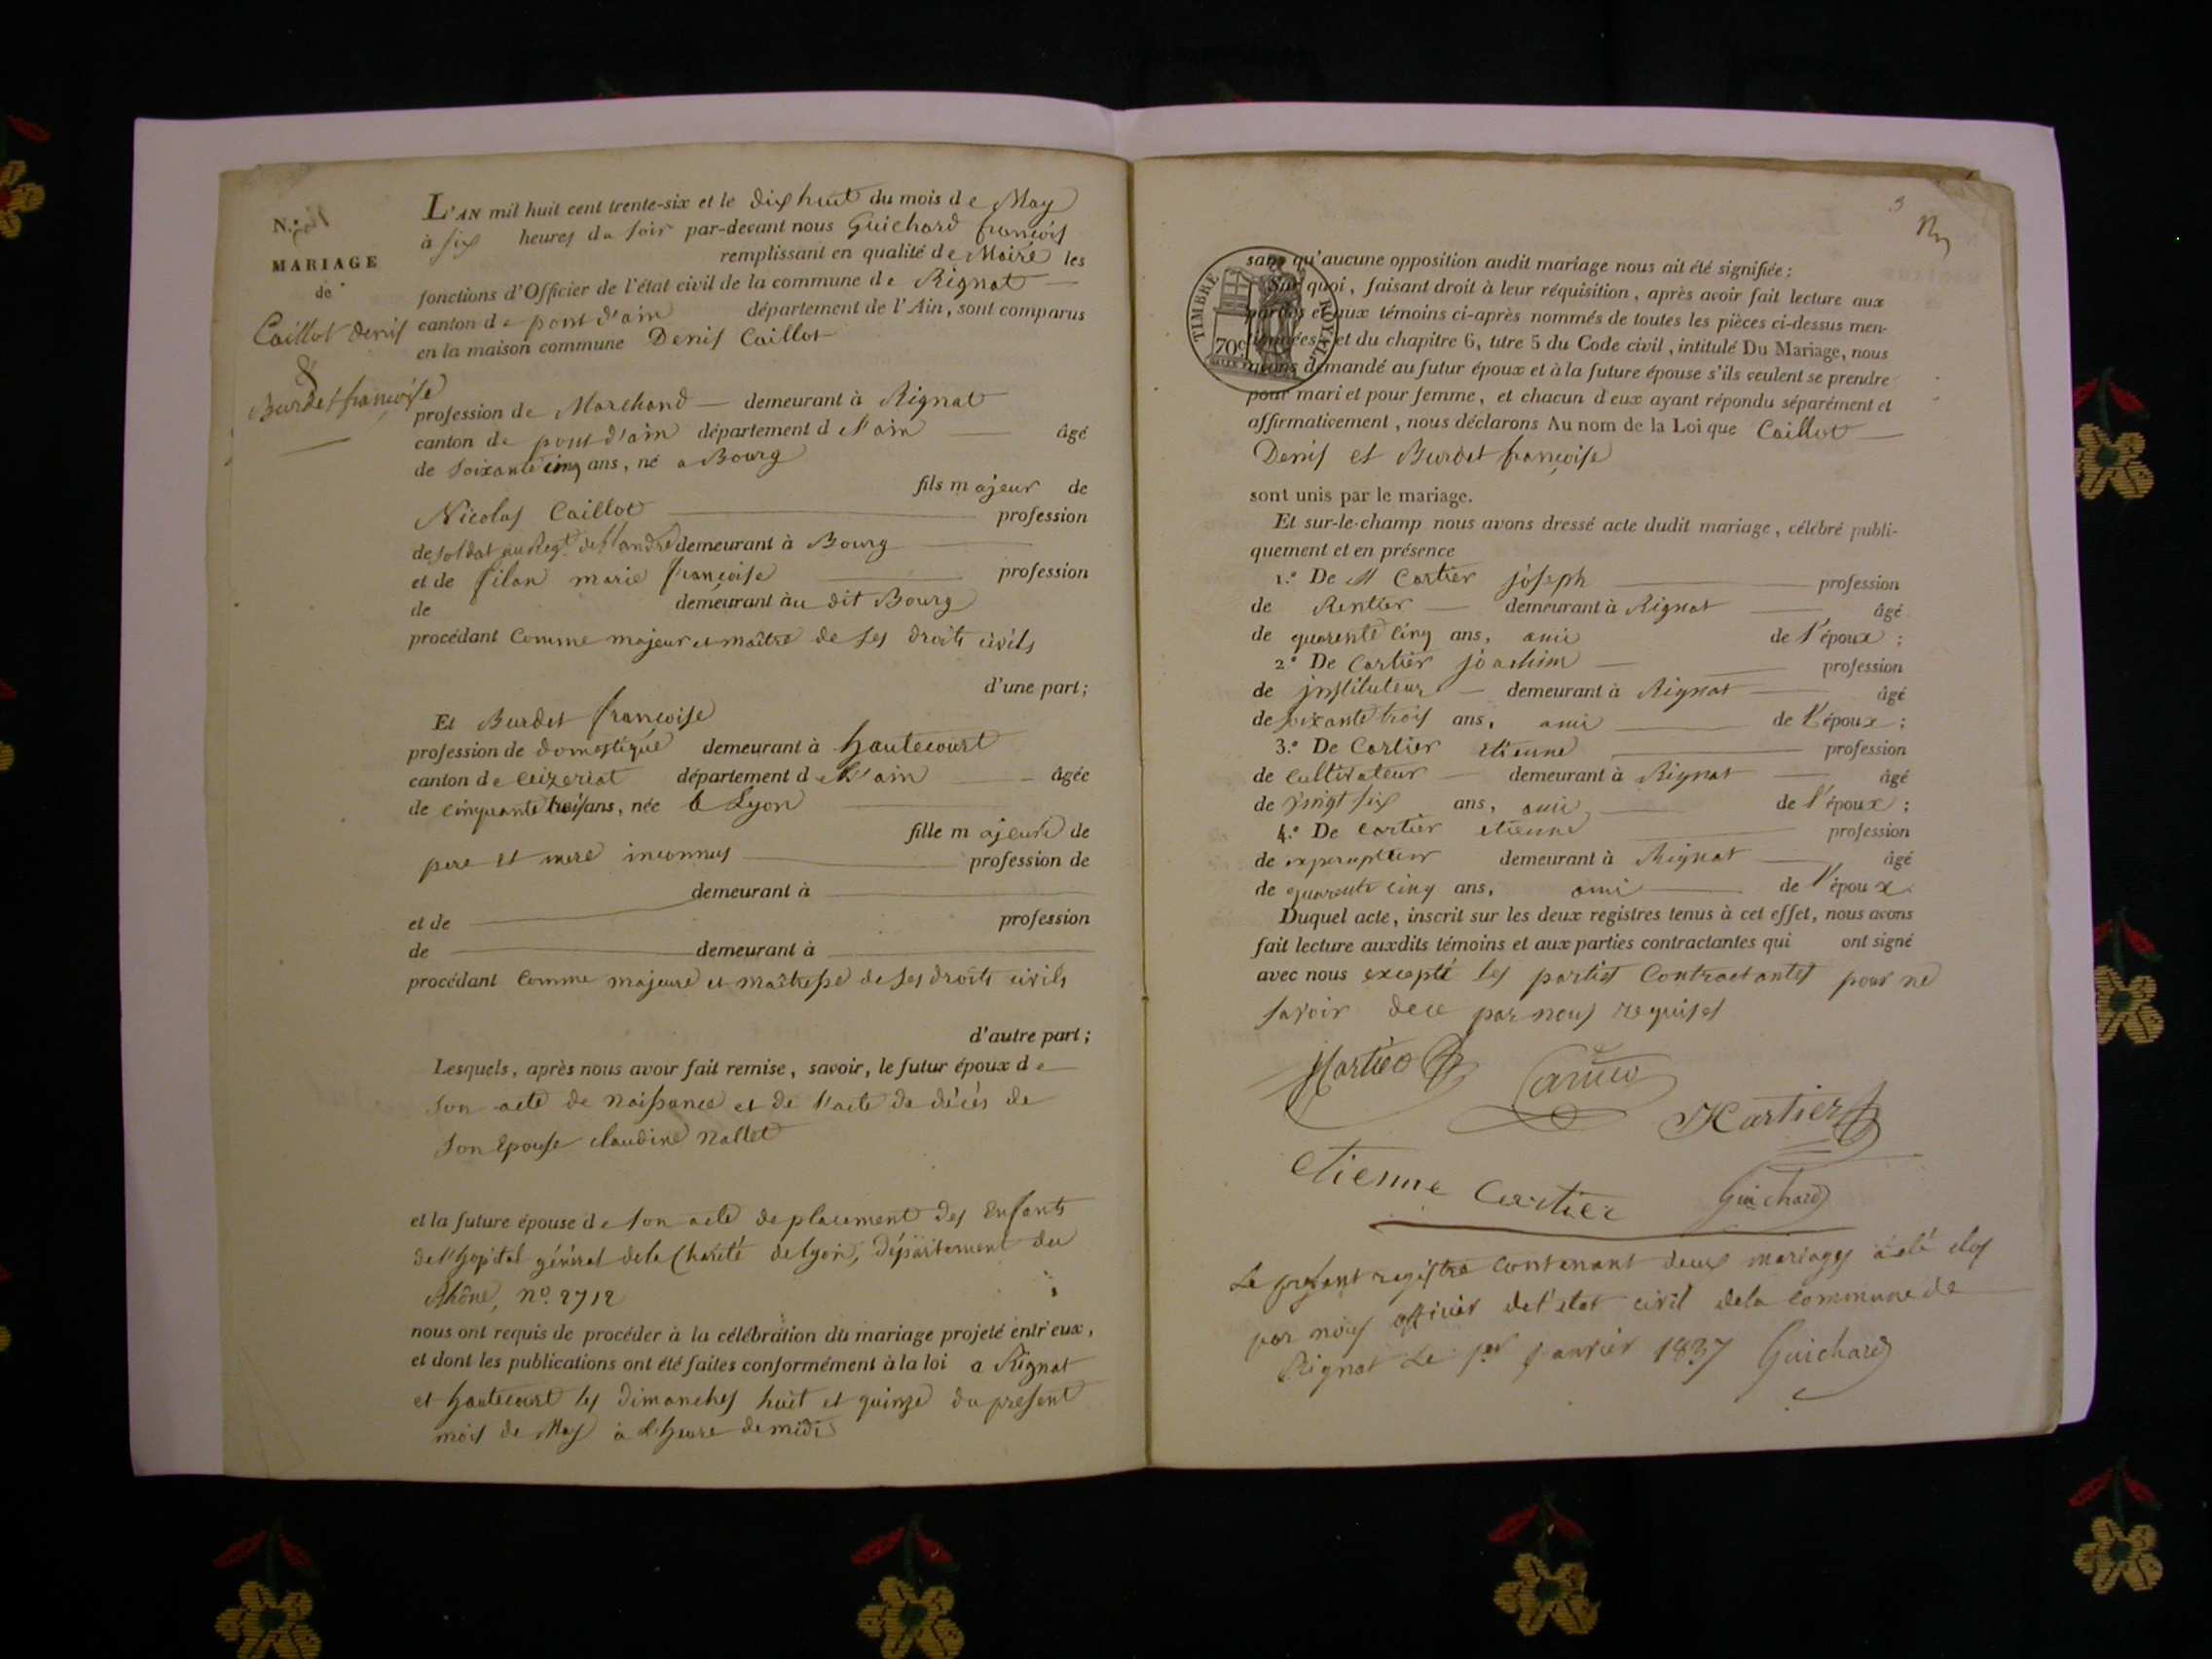 N.°
MARIAGE
de
Caillot denis
&
Burdet françoise
L'AN mil huit cent trente-six et le dix huit du mois de May
à six heures du soir par-devant nous Guichard françois
remplissant en qualité de Maire les
fonctions d'Officier de l'état civil de la commune de Rignat
canton de pont d'ain département de l'Ain, sont comparus
en la maison commune Denis Caillot
profession de Marchand demeurant à Rignat
canton de pont d'ain département de l'ain âgé
de soixante cinq ans, né a Bourg
fils majeur de
Nicolas Caillot profession
de soldat au Regt. de demeurant à Bourg
et de filan marie françoise profession
de demeurant àu dit Bourg
procédant Comme majeur et maître de ses droits civils
d'une part;
Et Burdet françoise
profession de domestique demeurant à hautecourt
canton de ceizeriat département de l'ain âgée
de cinquante trois ans, née à Lyon
fille majeure de
pere et mere inconnus profession de
demeurant à
et de profession
de demeurant à
procédant Comme majeure et maîtresse de ses droits civils
d'autre part;
Lesquels, après nous avoir fait remise, savoir, le futur époux de
son acte de naissance et de l'acte de décès de
son epouse claudine Nallet
et la future épouse de son acte de placement des Enfants
de l'hopital général de la Charité de lyon, département du
Rhône, n° 2712
nous ont requis de procéder à la célébration du mariage projeté entr'eux,
et dont les publications ont été faites conformément à la loi a Rignat
et hautecourt les dimanches huit et quinze du présent
mois de May à l'heure de midi
3
TIMBRE ROYAL
70c
sans qu'aucune opposition audit mariage nous ait été signifiée:
Sur quoi, faisant droit à leur réquisition, après avoir fait lecture aux
parties et aux témoins ci-après nommés de toutes les pièces ci-dessus men-
tionnées, et du chapitre 6, titre 5 du Code civil, intitulé Du Mariage, nous
avons demandé au futur époux et à la future épouse s'ils veulent se prendre
pour mari et pour femme, et chacun d'eux ayant répondu séparément et
affirmativement, nous déclarons Au nom de la Loi que Caillot
Denis et Burdet françoise
sont unis par le mariage.
Et sur-le-champ nous avons dressé acte dudit mariage, célébré publi-
quement et en présence
1.° De M Cartier joseph profession
de Rentier demeurant à Rignat âgé
de quarente cinq ans, ami de l'époux;
2.° De Cartier joachim profession
de jnstituteur demeurant à Rignat âgé
de soixante trois ans, ami de l'époux;
3.° De Cartier etienne profession
de Cultivateur demeurant à Rignat âgé
de vingt six ans, ami de l'époux;
4.° De Cartier etienne profession
de demeurant à Rignat âgé
de quarente cinq ans, ami de l'époux.
Duquel acte, inscrit sur les deux registres tenus à cet effet, nous avons
fait lecture auxdits témoins et aux parties contractantes qui ont signé
avec nous excepté les parties Contractantes pour ne
savoir de ce par nous requises
Cartier
Etienne Cartier Guichard
Le présent registre contenant deux mariages a été clos
par nous officier de l'etat civil de la commune de
Rignat Le 1er janvier 1837 Guichard